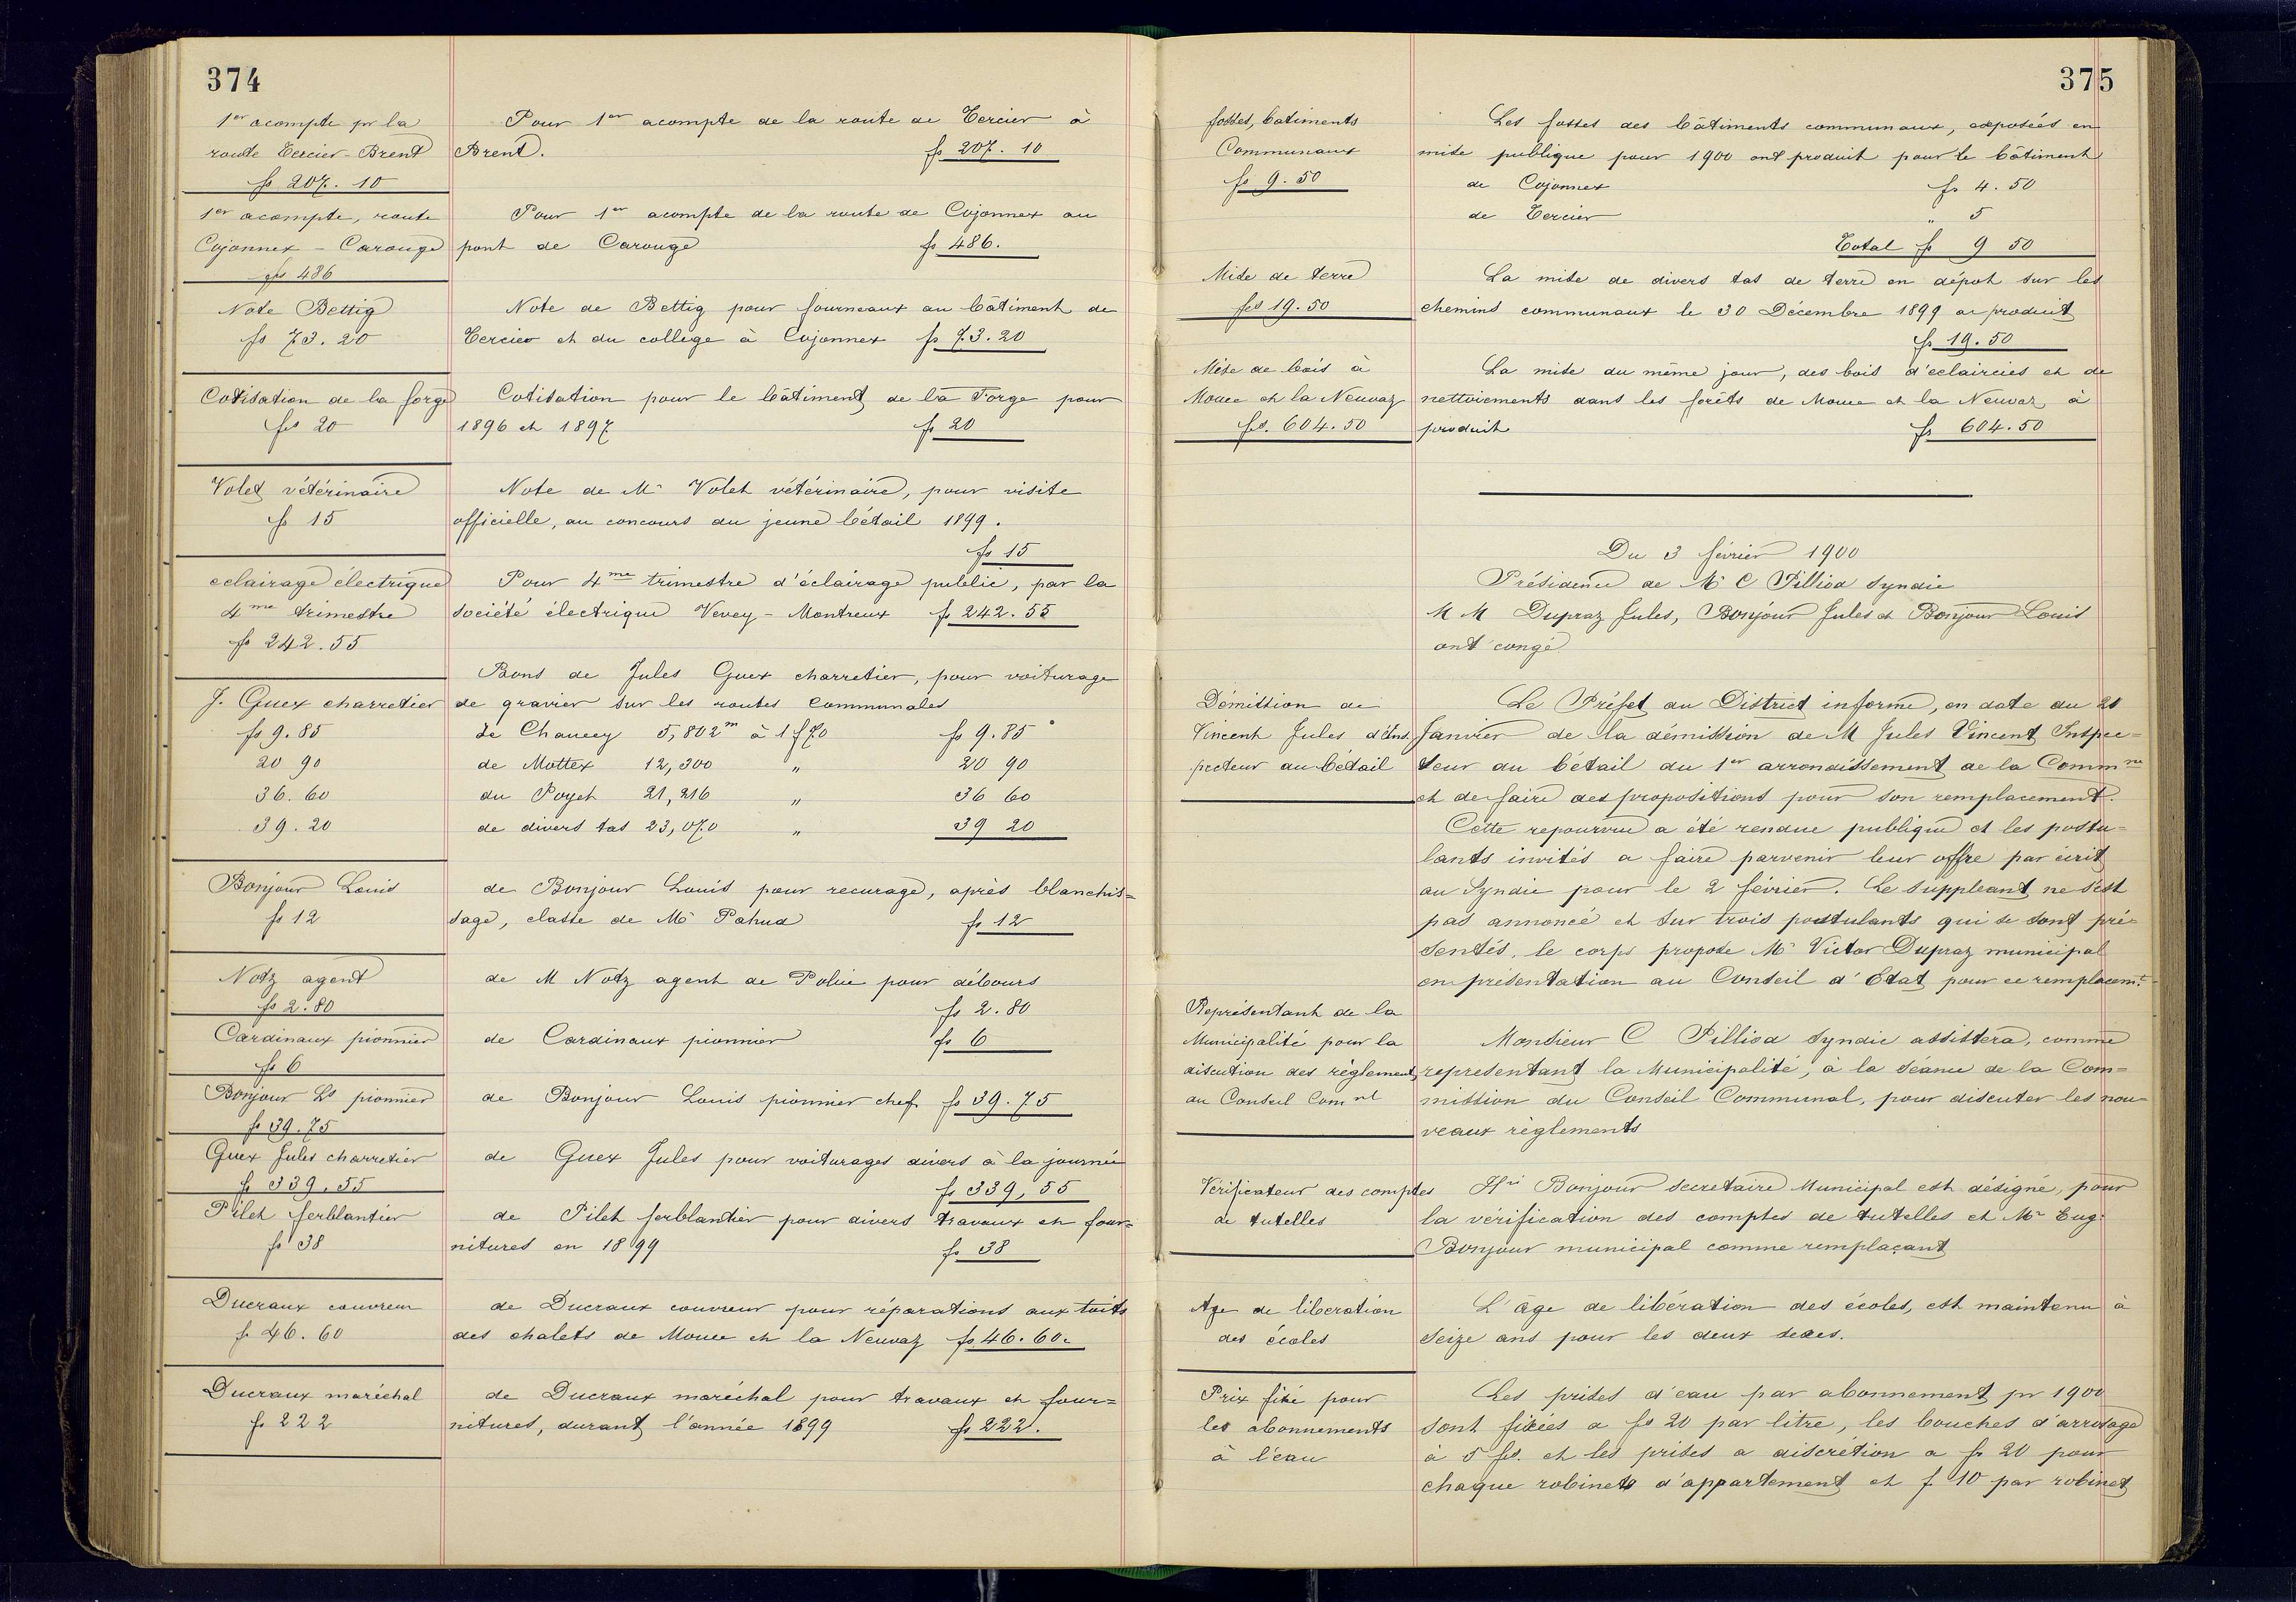 374
1er acompte pr la
route Tercier-Brent
fs 207.10
Pour 1er acompte de la route de Tercier à
Brent. fs 207.10
1er acompte, route
Cojonnex - Carouge
fs 486
Pour 1er acompte de la route de Cojonnex au
pont de Carouge fs 486.
Note Bettig
fs 73.20
Note de Bettig pour fourneaux au bâtiment de
Tercier et du collège à Cojonnex fs 73.20
Cotisation de la forge
fs 20
Cotisation pour le bâtiment de la Forge pour
1896 et 1897 fr 20
Volet vétérinaire
fs 15
Note de Mr Volet vétérinaire, pour visite
officielle, au concours du jeune bétail 1899.
fs 15
eclairage électrique
4me trimestre
fs 242.55
Pour 4me trimestre d'éclairage public, par la
société électrique Vevey - Montreux fs 242.55
J. Guex charretier
fs 9.85
20 90
36.60
39.20
Bons de Jules Guex charretier, pour voiturage
de gravier sur les routes communales
de Chaucey 5,802m à 1f70 fs 9.85
de Mottex 12,300 " 20 90
du Poyet 21,216 " 36 60
de divers tas 23,070 " 39 20
Bonjour Louis
fs 12
de Bonjour Louis pour recurage, après blanchis=
sage, classe de Mr Pahud fs 12
Notz agent
fs 2.80
de M Notz agent de Police pour débours
fs 2.80
Cardinaux pionnier
fs 6
de Cardinaux pionnier fs 6
Bonjour Ls pionnier
fs 39.75
de Bonjour Louis pionnier chef fs 39.75
Guex Jules charretier
fs 339,55
de Guex Jules pour voiturages divers à la journée
fs 339,55
Pilet ferblantier
fs 38
de Pilet ferblantier pour divers travaux et four=
nitures en 1899 fs 38
Ducraux couvreur
fs 46.60
de Ducraux couvreur pour réparations aux toits
des chalets de Mouce et la Neuvaz fs 46.60.
Ducraux maréchal
fs 222
de Ducraux maréchal pour travaux et four=
nitures, durant l'année 1899 fs 222.
375
fosses, batiments
Communaux
fs 9.50
Les fosses des bâtiments communaux, exposées en
mise publique pour 1900 ont produit pour le bâtiment
de Cojonnex fr 4.50
de Tercier " 5
Total fr 9 50
Mise de terre
fcs 19.50
La mise de divers tas de terre en dépot sur les
chemins communaux le 30 Décembre 1899 a produit
fr 19.50
Mise de bois à
Mouce et la Neuvaz
fcs. 604.50
La mise du même jour, des bois d'éclaircies et de
nettoiements dans les forêts de Mouce et la Neuvaz, à
produit fs 604.50
Du 3 février 1900
Présidence de Mr C Pilliod Syndic
MM Dupraz Jules, Bonjour Jules et Bonjour Louis
ont congé
Démission de
Vincent Jules d'Ins.
pecteur du bétail
Le Préfet du District informe, en date du 21
Janvier de la démission de M Jules Vincent Inspec=
teur du bétail du 1er arrondissement de la Commne
et de faire des propositions pour son remplacement.
Cette repourvue a été rendue publique et les postu=
lants invités a faire parvenir leur offre par écrit
au Syndic pour le 2 février. Le suppleant ne s'est
pas annoncé et sur trois postulants qui se sont pré=
sentés, le corps propose Mr Victor Dupraz municipal
en présentation au Conseil d'Etat pour ce remplacemt
Représentant de la
Municipalité pour la
discution des règlements
au Conseil Comnl
Monsieur C Pilliod Syndic assistera, comme
representant la Municipalité, à la séance de la Com=
mission du Conseil Communal, pour discuter les nou=
veaux règlements
Vérificateur des comptes
de tutelles
Hri Bonjour secretaire Municipal est désigné, pour
la vérification des comptes de tutelles et Mr Eug.
Bonjour municipal comme remplaçant
Age de liberation
des écoles
L'âge de libération des écoles, est maintenu à
seize ans pour les deux sexes.
Prix fixé pour
les abonnements
à l'eau
Les prises d'eau par abonnement pr 1900
sont fixées a fs 20 par litre, les bouches d'arrosage
à 5 fcs. et les prises a discrétion a fr 20 pour
chaque robinets d'appartement et f 10 par robinet